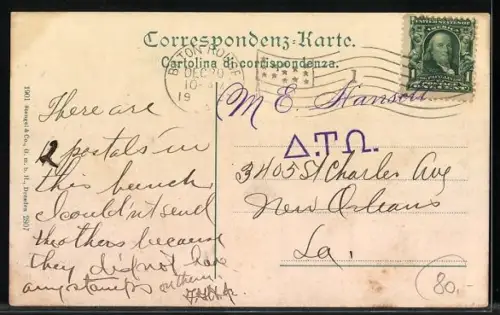 Correspondenz-Karte.
Cartolina di corrispondenza.
BATON ROUGE
DEC 20
10-
19
1
M E. Hansell
Δ.Τ.Ω.
3405 St Charles Ave
New Orleans
La.
80.-
There are
12 postals in
this bunch
I couldn't send
the others because
they did not have
any stamps on them
1901 Stengel & Co., G. m. b. H., Dresden